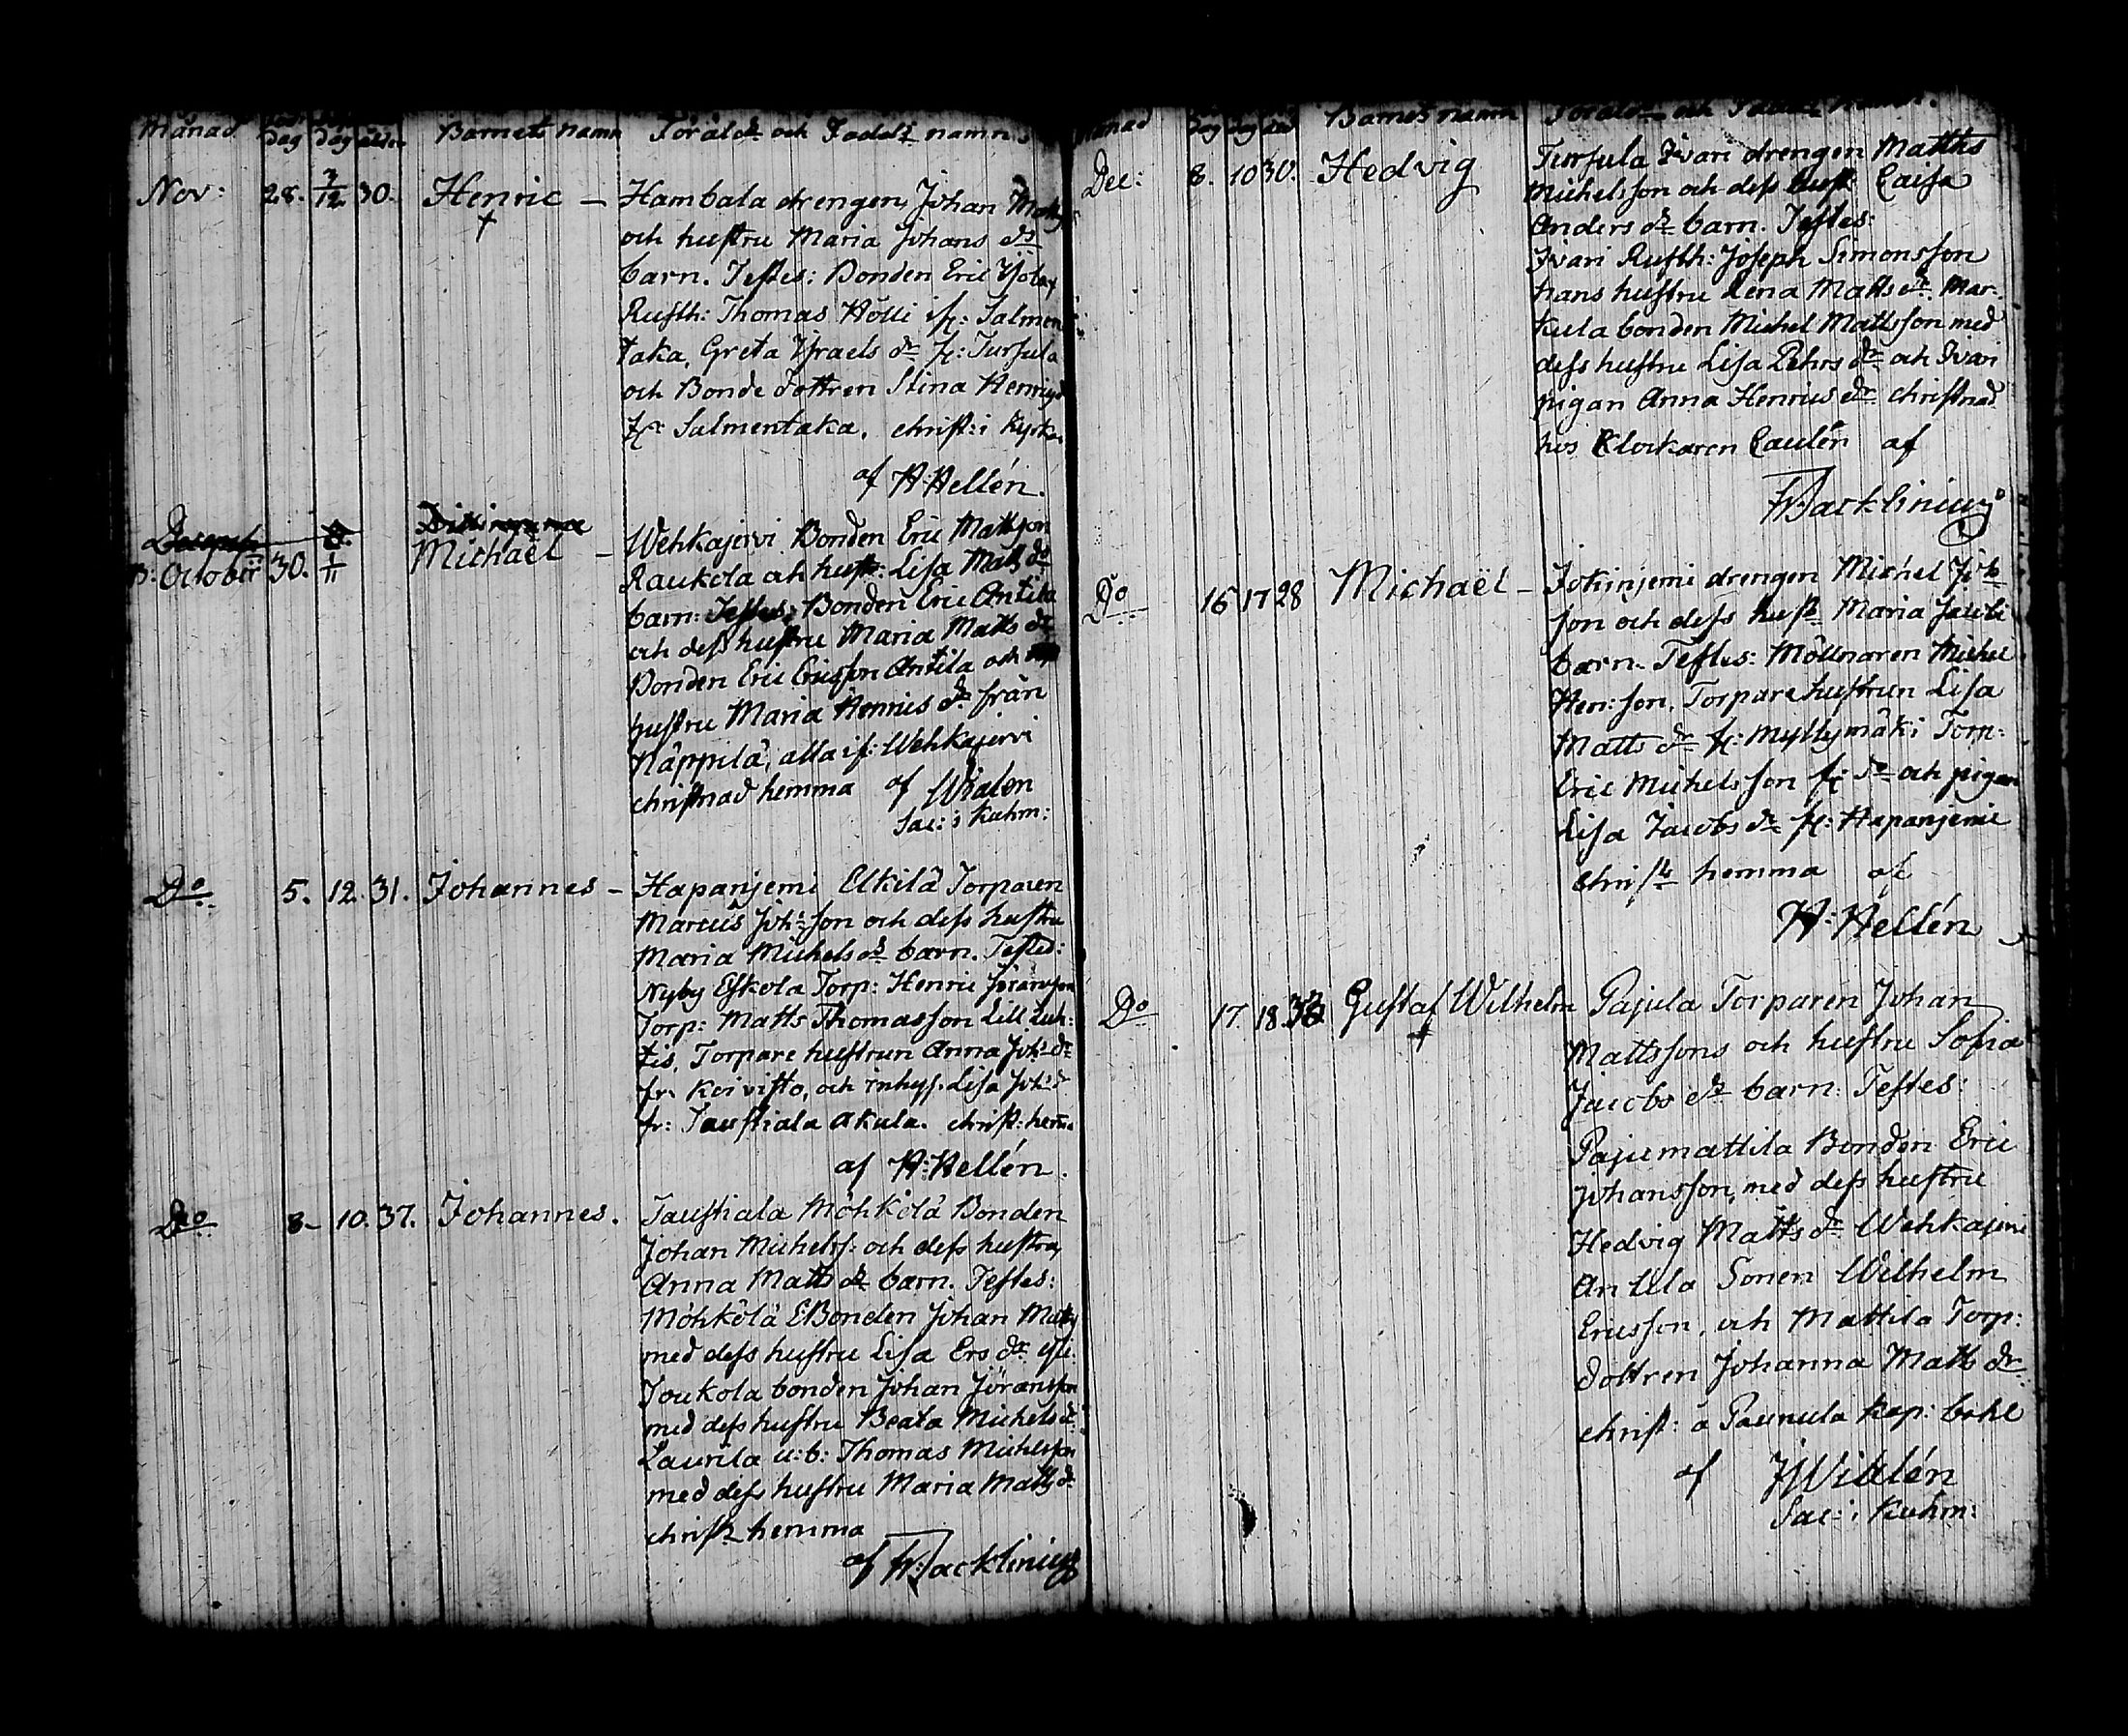 Månad dag dag ålder Barnets namn Föräld: och Faddr: namn
Nov: 28. 3/12 30. Henric — Hambala drengen Johan Matts
och hustru Maria Johans dr
barn. Testes: Bonden Eric
Rusth: Thomas Hölli if: Salmen
taka, Greta Israels dr fr: Tursula
och Bonde dottren Stina Henrics
fr: Salmentaka, christ: i Kyrkan
af H: Hellén.
D: October 30. 1/11 Michaël — Wehkajervi Bonden Eric Mattsson
Raukola och hustr: Lisa Matts dr
barn: Testes: Bonden Eric Antila
och dess hustru Maria Matts dr
Bonden Eric Ericsson Antila och
hustru Maria Henrics dr från
Näppilä, alla if: Wehkajervi
christnad hemma af Widlén
Sac: i Kuhm:
Do 5. 12. 31. Johannes — Hapanjemi Elkilä Torparen
Marcus Joh: son och dess hustru
Maria Michels dr barn. Testes:
Nyby Eskola Torp: Henric Jöransson
Torp: Matts Thomasson Lill Luh:
tis, Torpare hustrun Anna Joh: dr
fr: Koivisto, och inhys. Lisa Joh: d
fr: Taustiala Akula. christ: hemma
af H: Hellén.
Do 8 — 10. 37. Johannes. Taustiala Möhkölä Bonden
Johan Michelss: och dess hustru
Anna Matts dr barn. Testes:
Möhkölä E: Bonden Johan Matts
med dess hustru Lisa Ers dr
Joukola bonden Johan Jöransson
med dess hustru Beata Michels d
Laurila u: b: Thomas Michelsson
med dess hustru Maria Matts dr
christ: hemma
af F: Wacklinius
Månad dag dag åld Barnets namn Föräld: och Faddr: namn.
Dec: 8. 10 30. Hedvig Tursula Ivari drengen Matths
Michelsson och dess hust Caisa
Anders dr barn. Testes:
Ivari Rusth: Joseph Simonsson
hans hustru Lena Matts dr. Mar:
kula bonden Michel Mattsson med
dess hustru Lisa Pehrs dr och Ivari
pigan Anna Henrics dr christnad
hos Klockaren Caulén af
Wacklinius
Do 16 17 28 Michaël — Jokinjemi drengen Michel Joh:
son och dess hust: Maria Jacobs
barn. Testes: Möllnaren Michel
Hen: son. Torpare hustrun Lisa
Matts dr fr: Myllymäki Torp:
Eric Michelsson fr: do och pigan
Lisa Jacobs dr fr: Hapanjemi
christ: hemma af
H: Hellén
Do 17. 18. 32 Gustaf Wilhelm Pajula Torparen Johan
Mattssons och hustru Sofia
Jacobs dr barn: Testes:
Pajumattila Bonden Eric
Johansson, med dess hustru
Hedvig Matts dr Wehkajervi
Antila Sonen Wilhelm
Ericsson, och Mattila Torp:
dottren Johanna Matts dr.
christ: å Paunula Kap: bohl
af J Widlén
Sac: i Kuhm: